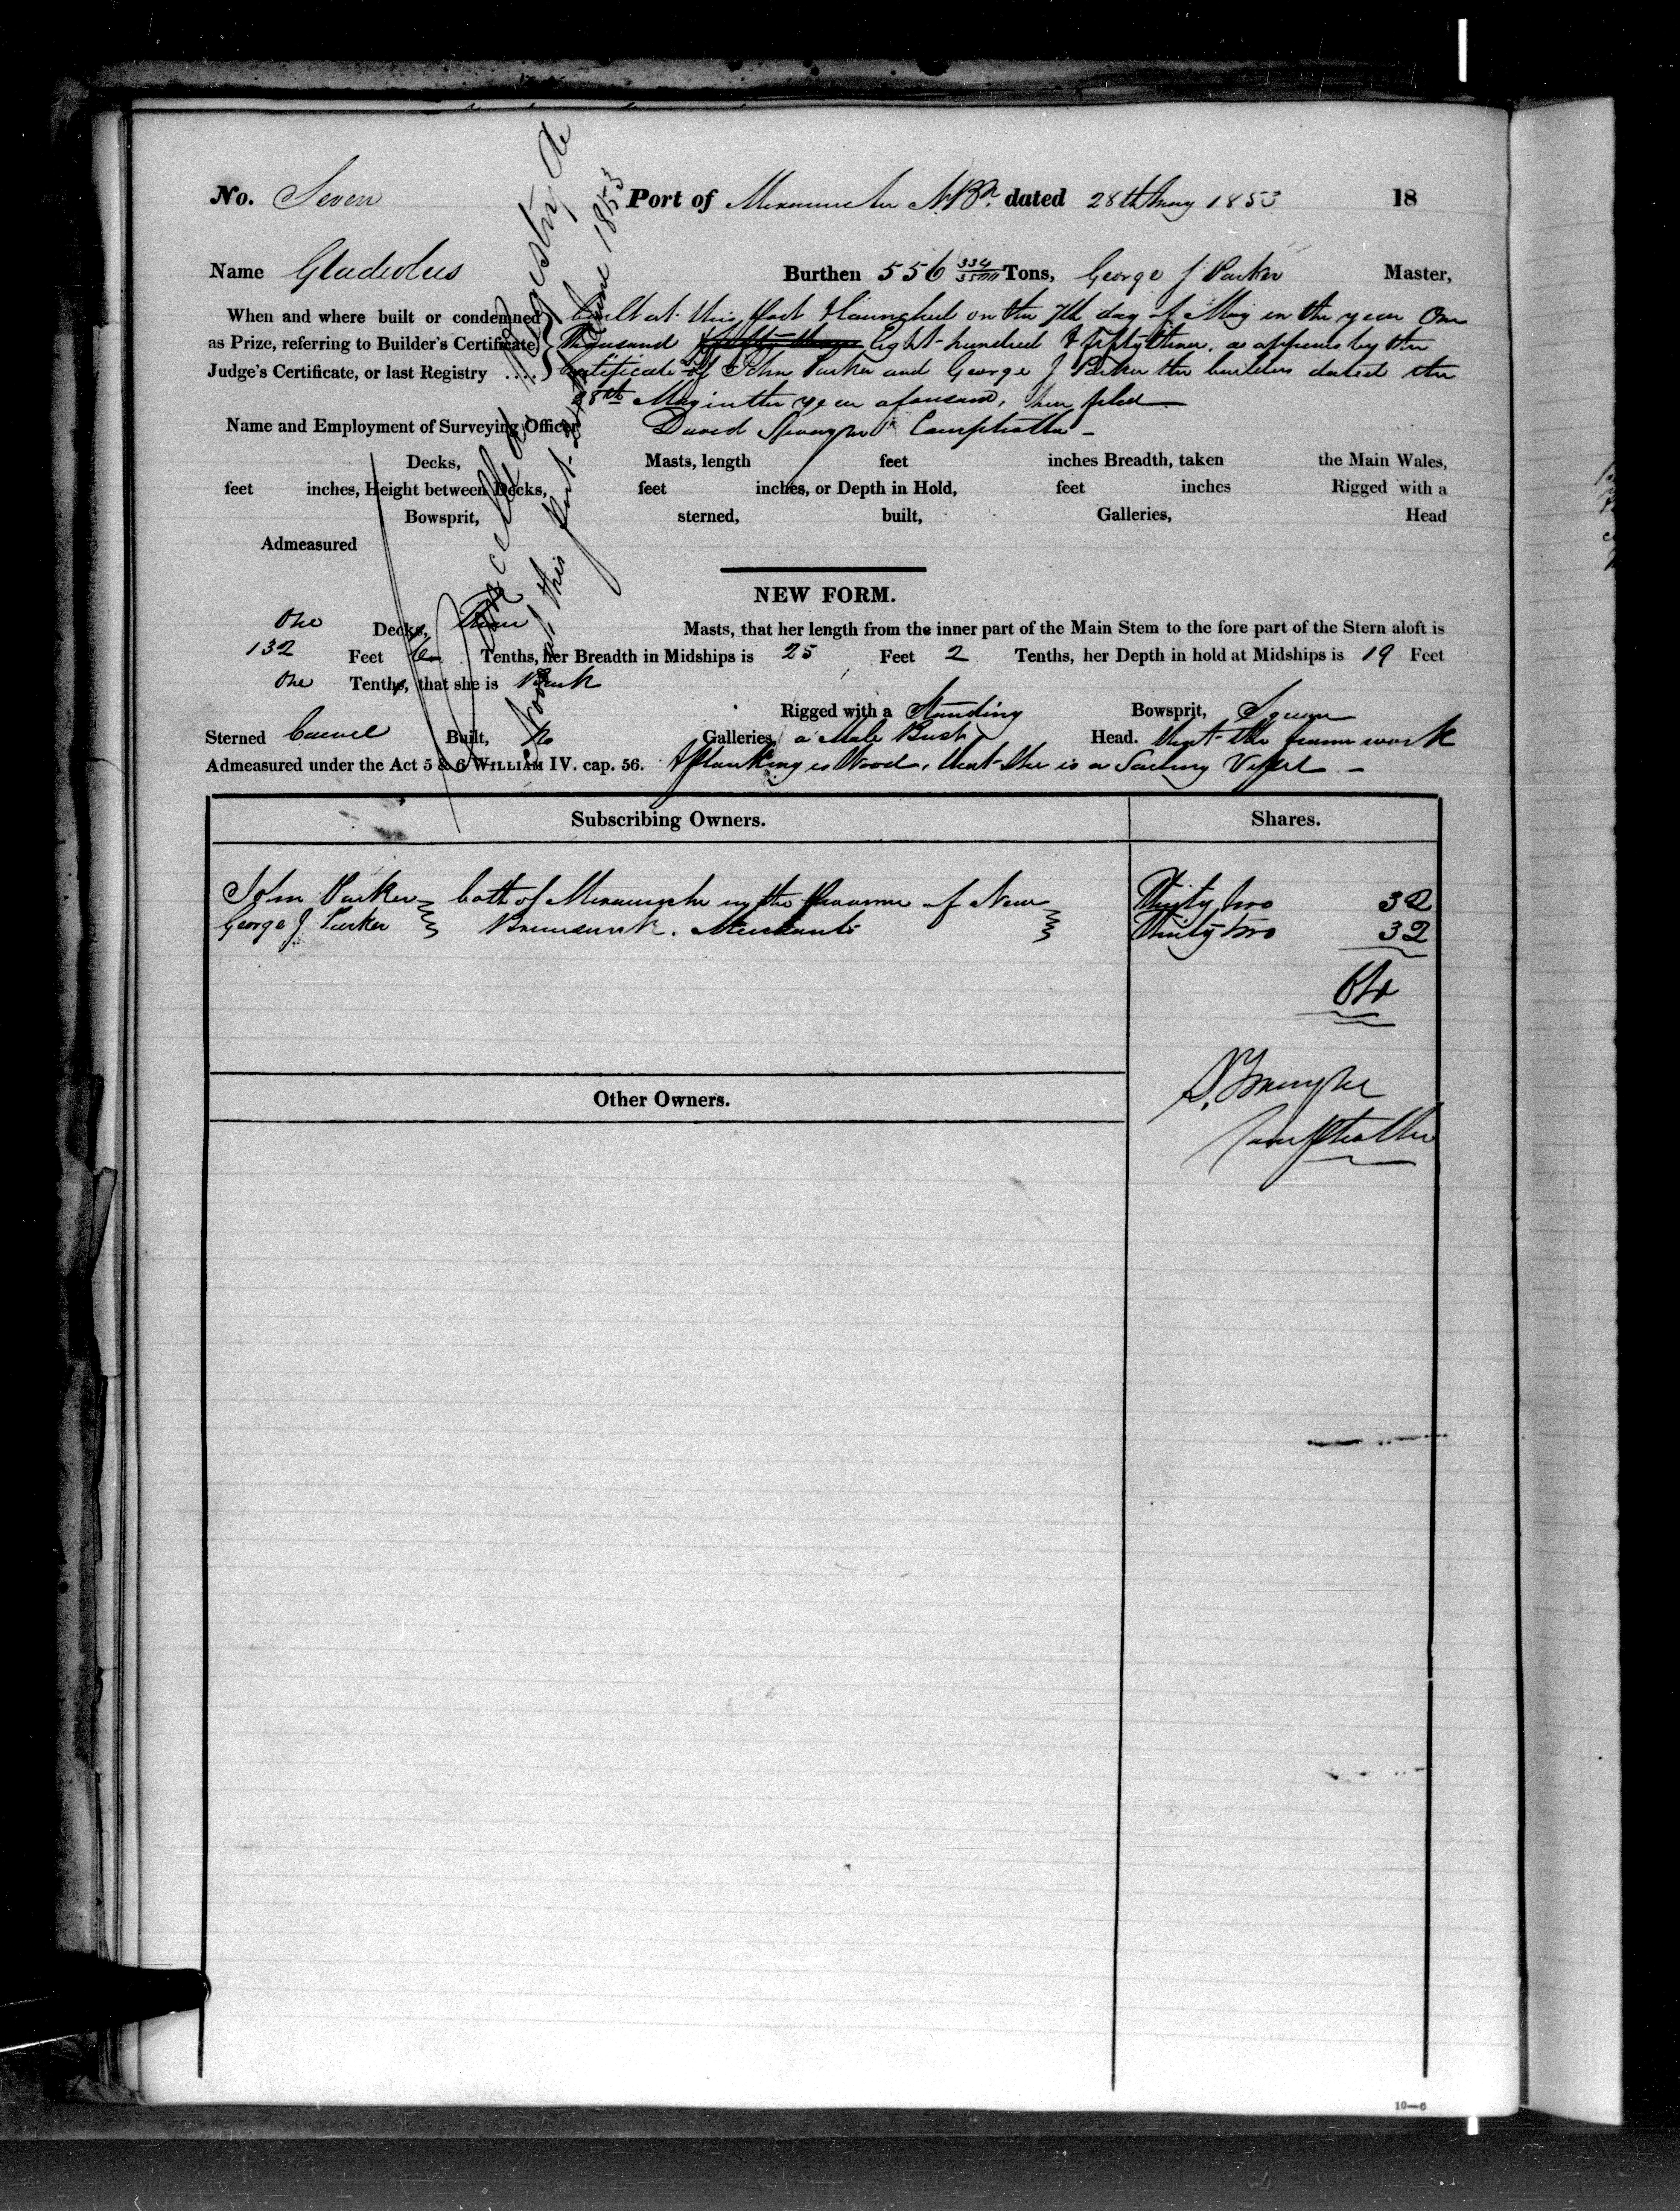 No. Seven Port of Miramichi NBk. dated 28th May 1853 18
Name Gladiolus Burthen 556 334/3500 Tons, George J Parker Master,
When and where built or condemned built at this Port & launched on the 7th day of May in the year One
as Prize, referring to Builder's Certificate, Thousand Eight hundred & fifty three, as appears by the
Judge's Certificate, or last Registry .... Certificate of John Parker and George J Parker the builders dated the
28th May in the year aforesaid, here filed
Name and Employment of Surveying Officer David Comptroller
Decks, Masts, length feet inches Breadth, taken the Main Wales,
feet inches, Height between Decks, feet inches, or Depth in Hold, feet inches Rigged with a
Bowsprit, sterned, built, Galleries, Head
Admeasured
NEW FORM.
One Decks, three Masts, that her length from the inner part of the Main Stem to the fore part of the Stern aloft is
132 Feet Tenths, her Breadth in Midships is 25 Feet 2 Tenths, her Depth in hold at Midships is 19 Feet
One Tenths, that she is Bark
Rigged with a Standing Bowsprit, Square
Sterned Carvel Built, No Galleries, a Male Bust Head. that the frame work
Admeasured under the Act 5 & 6 WILLIAM IV. cap. 56. & planking is Wood, that she is a Sailing Vessel
Cancelled Registry de
Novo at this Port 1853
Subscribing Owners. Shares.
John Parker both of Miramichi in the Province of New Thirty two 32
George J Parker Brunswick. Merchants Thirty two 32
64
D.
Comptroller
Other Owners.
10—6